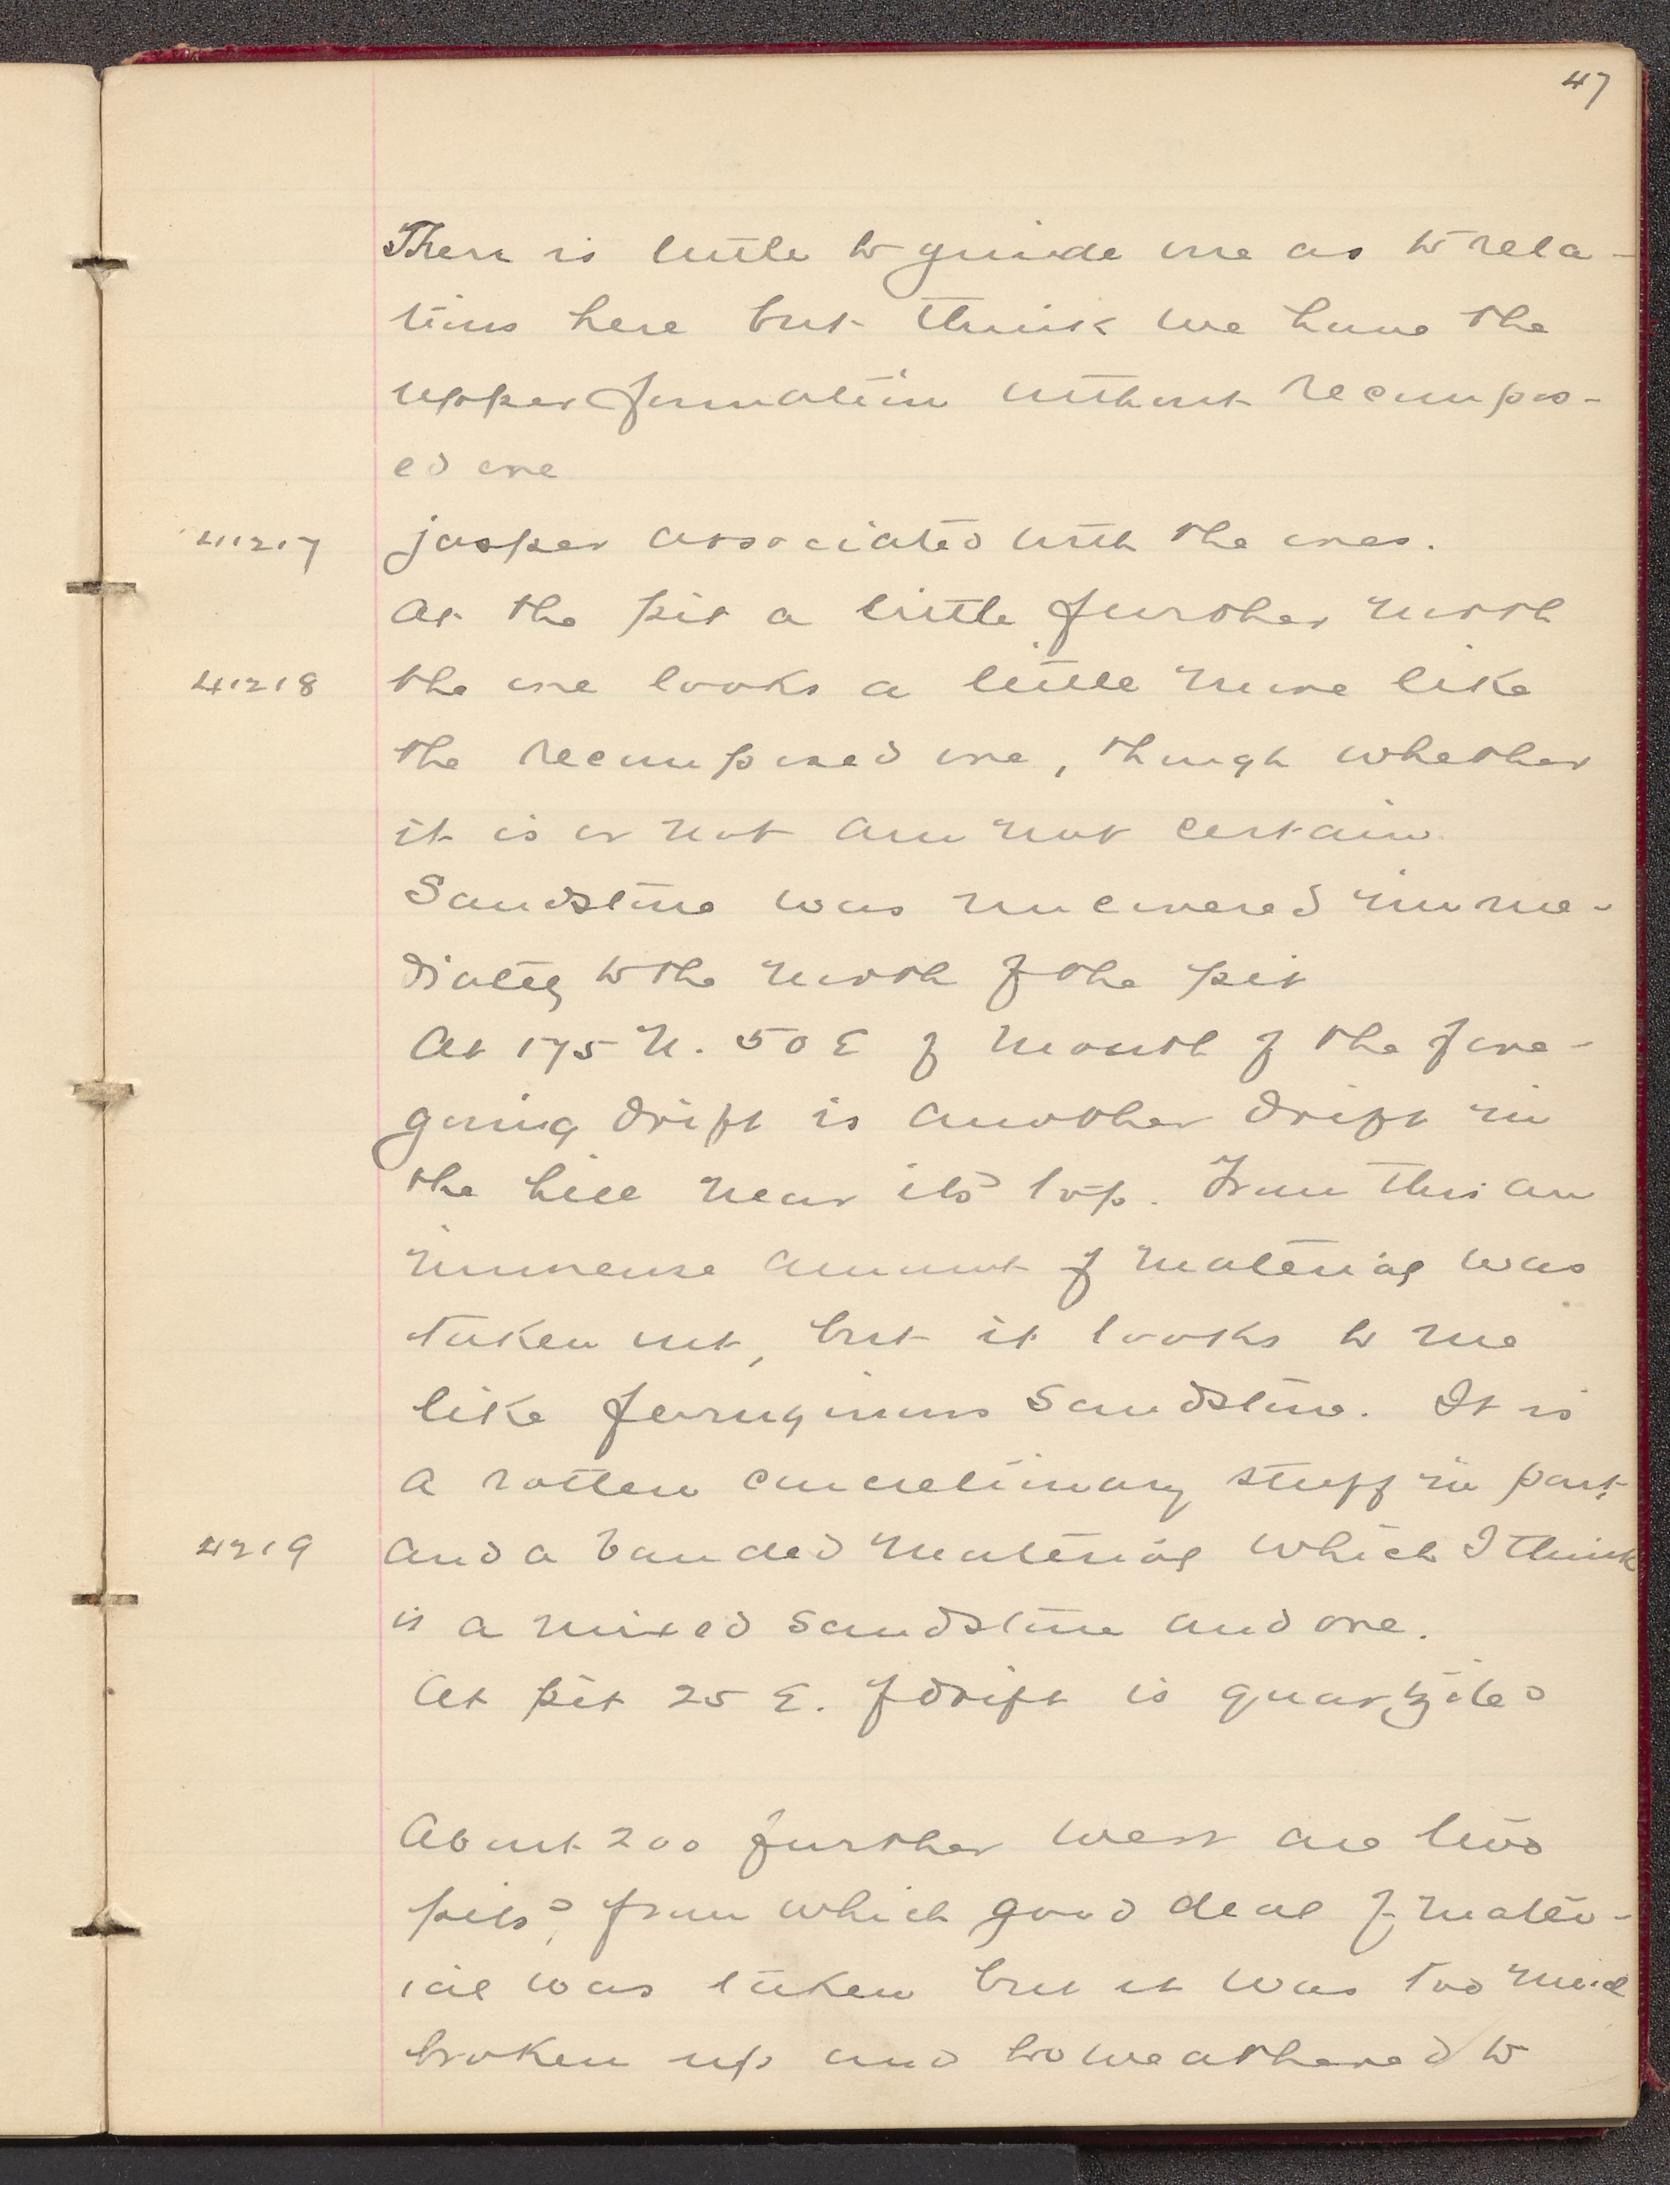 47
There is little to guide one as to rela-
tions here but think we have the
upper formation without recompos-
ed ore
41217 jasper associated with the ores.
At the pit a little further north
41218 the ore looks a little more like
the recomposed ore, though whether
it is or not am not certain
Sandstone was uncovered imme-
diately to the north of the pit
At 175 N. 50 E of mouth of the fore-
going drift is another drift in
the hill near its top. From this an
immense amount of material was
taken out, but it looks to me
like ferruginous sandstone. It is
a rotten concretionary stuff in part
41219 and a banded material which I think
is a mixed sandstone and ore.
At pit 25 E. of drift is quartzite
About 200 further west are two
pits, from which good deal of mater-
ial was taken but it was too much
broken up and too weathered to